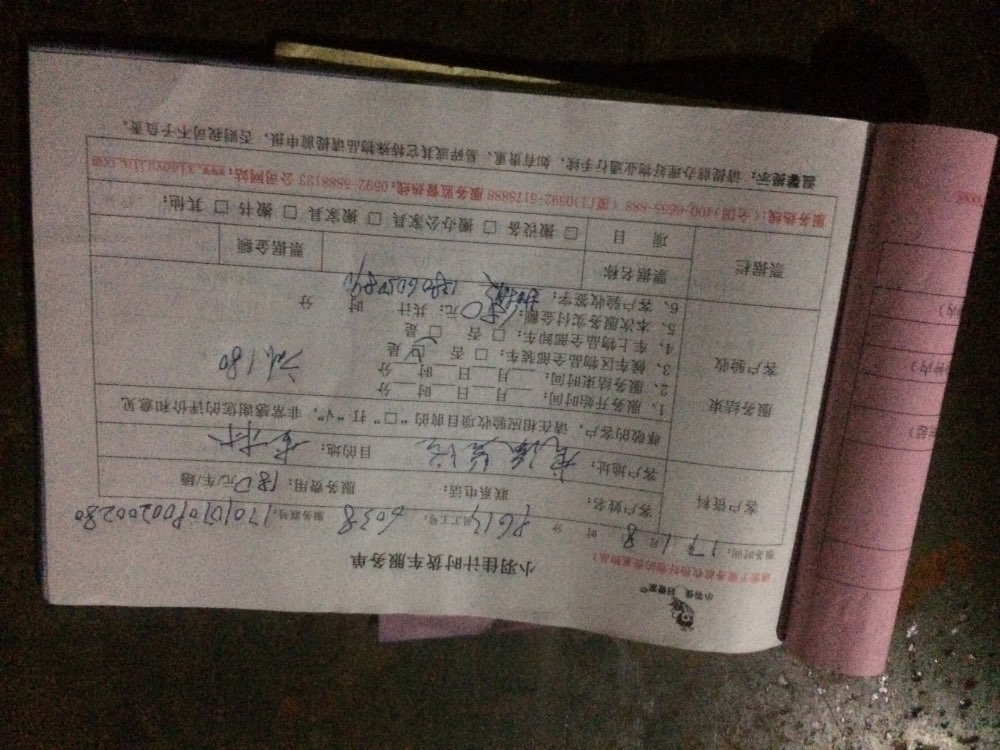 小羽佳 好管家
请您于服务前收拾好您的贵重物品！
小羽佳计时货车服务单
服务时间：17 1月8 时 分 员工工号：6038 服务联号：170107090020028
客户资料 客户姓名： 联系电话： 服务费用：180元/车/趟
客户地址： 目的地：
服务结束
客户验收
尊敬的客户，请在相应验收项目前的“□”打“√”，非常感谢您的评价和意见
1、服务开始时间： 月 日 时 分
2、服务结束时间： 月 日 时 分
3、候车区物品全部装车：□ 否 □ 是
4、车上物品全部卸车：□ 否 □ 是
5、本次服务实付金额： 元；共计： 时 分
6、客户验收签字： 1380605089
180
票据栏 票据名称 票据金额
项 目 □ 搬设备 □ 搬办公家具 □ 搬家具 □ 搬书 □ 其他：
服务热线：（全国）400-6695-888（厦门）0592-5178888 服务监督热线：0592-5888123 公司网站：www.xiaoyujia.com
温馨提示：请提前办理好物业通行手续，如有贵重、易碎或其它特殊物品请提前申报，否则我司不予负责。